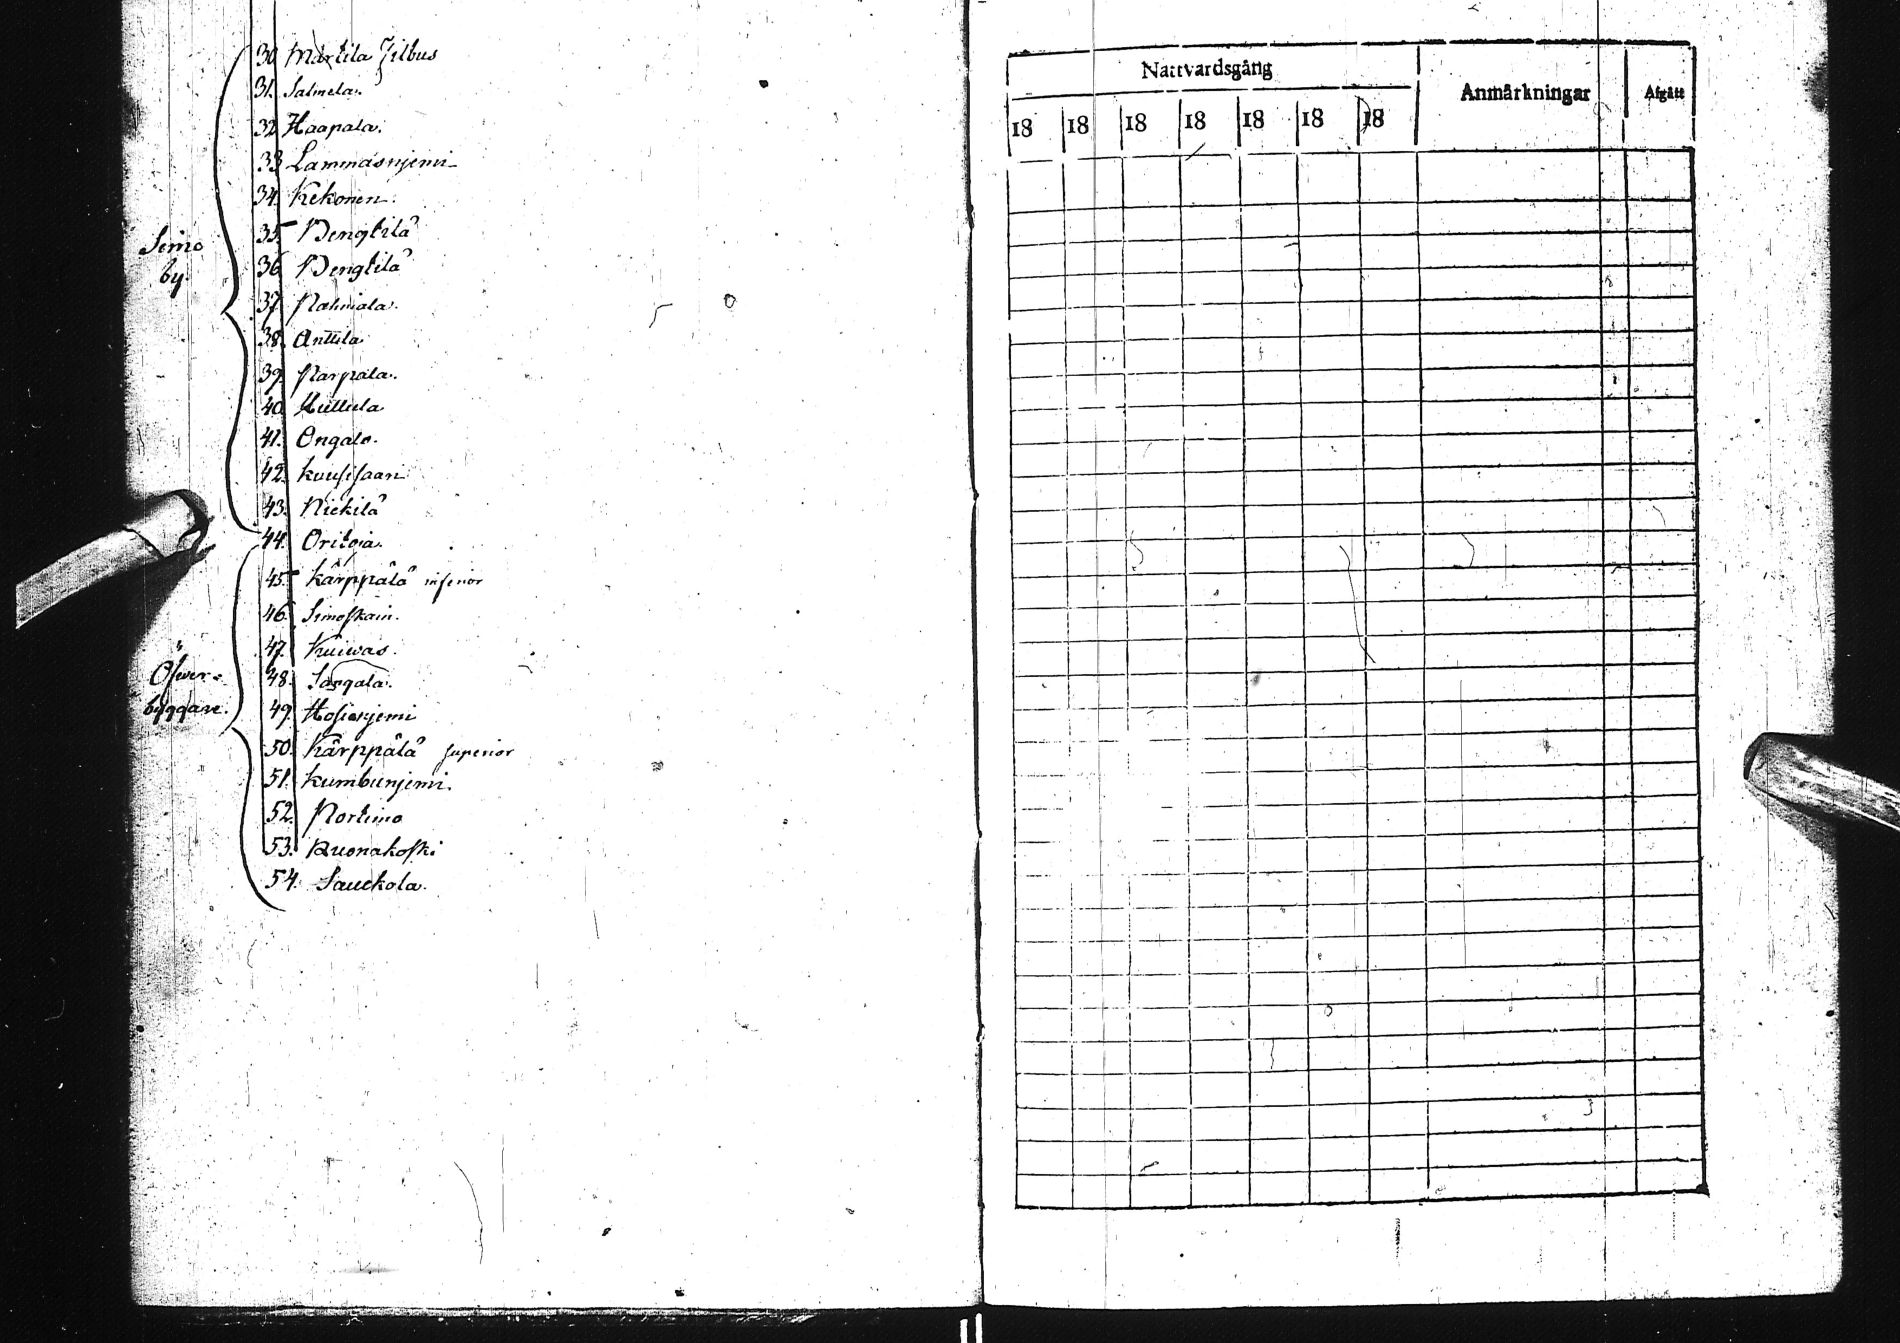 Simo
by.
30. Martila Jilbus
31. Salmela.
32. Haapala.
33. Lammasnjemi
34. Kekonen.
35. Bengtilä
36. Bengtilä
37. Malmiala.
38. Anttila
39. Narpala.
40. Huttula
41. Ongalo.
42. Kuusisaari
43. Niekilä
44. Oriloia.
Öfwer-
byggare.
45. Kärppälä inferior
46. Simoskain.
47. Kuiwas.
48. Sargala.
49. Hosionjemi
50. Kärppälä superior
51. Kumbunjemi.
52. Nortimo
53. Ruonakoski
54. Sauckola.
Nattvardsgång
Anmärkningar
Afgått
18 18 18 18 18 18 18